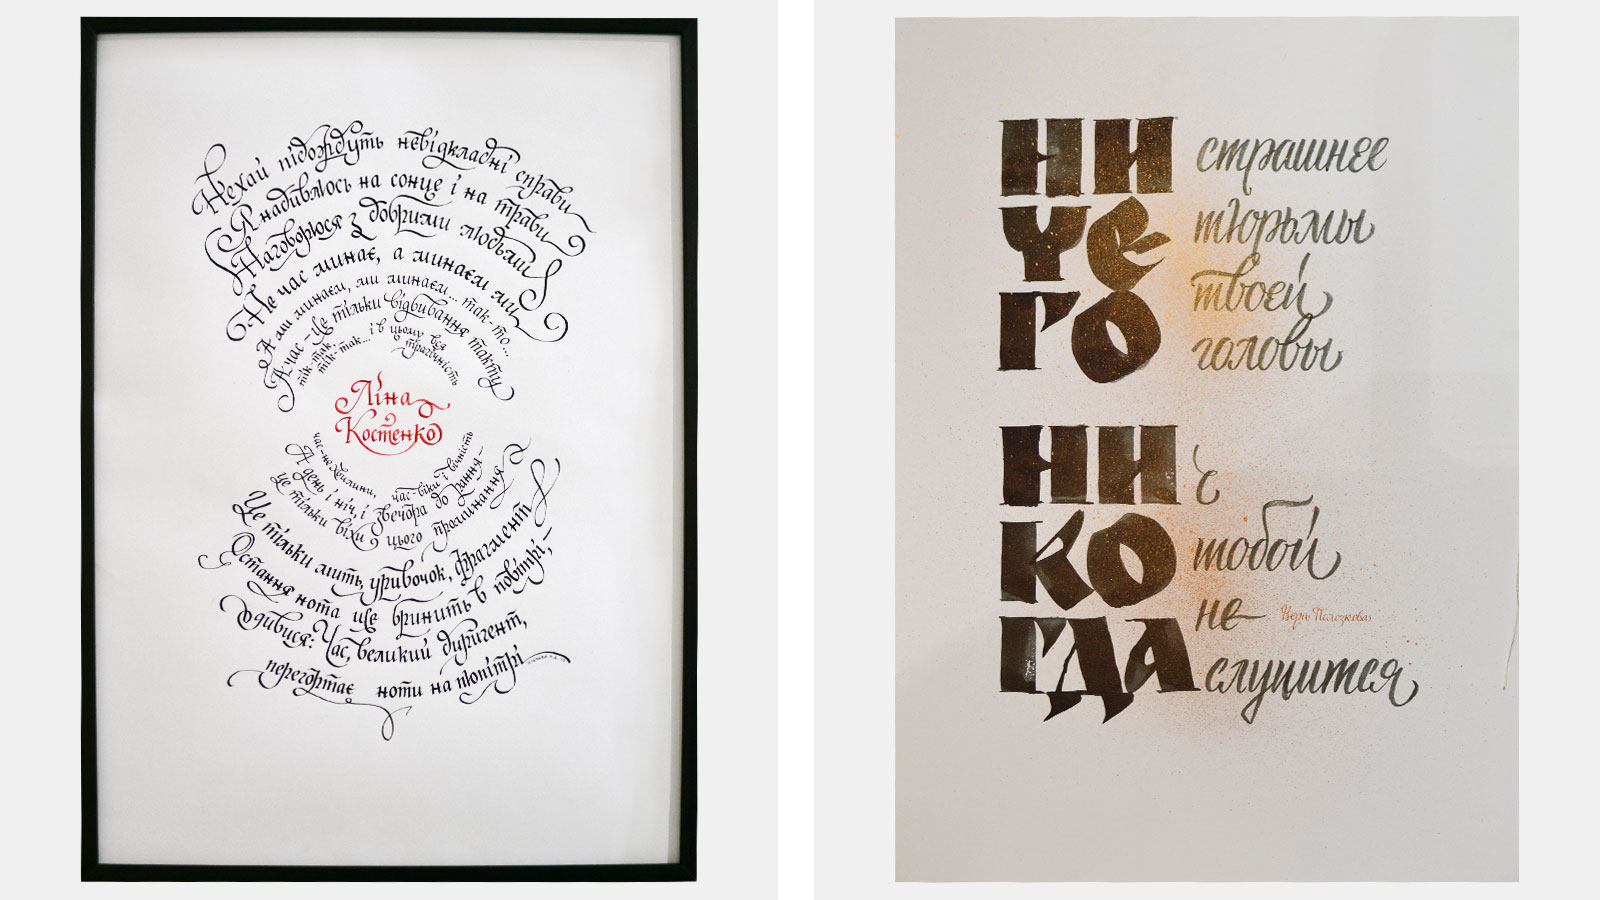 Нехай підождуть невідкладні справи
Я надивлюсь на сонце і на трави
Наговорюся з добрими людьми
Не час минає, а минаєм ми
А ми минаєм, ми минаєм... так-то...
А час - це тільки відбивання такту
тік-так,
тік-так... і в цьому вся
трагічність
Ліна
Костенко
час-не хвилини, час-віки і вічність
А день і ніч, і звечора до рання-
це тільки віхи цього проминання
Це тільки мить, уривочок, фрагмент
Остання нота ще бринить в повітрі,-
дивися: Час, великий диригент,
перегортає ноти на пюпітрі
НИ
ЧЕ
ГО
страшнее
тюрьмы
твоей
головы
НИ
КО
ГДА
с
тобой
не
слуцится
Вера Полозкова